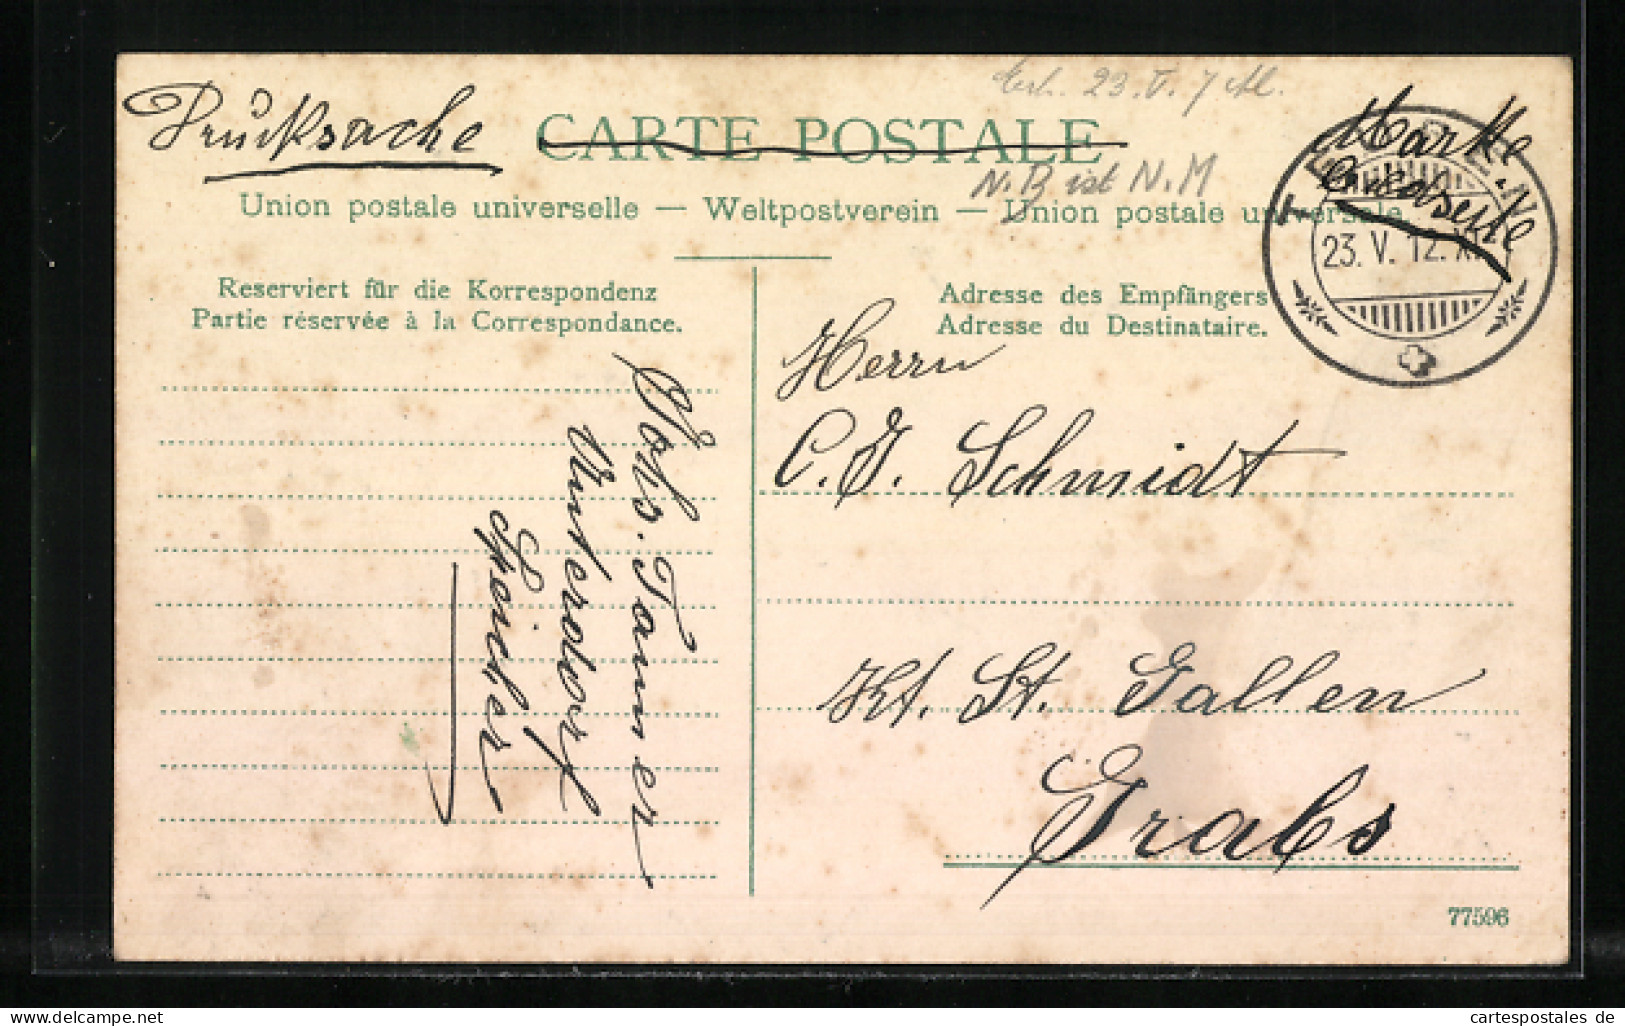 Drucksache
CARTE POSTALE
23. V.
N.B ist N.M
Marke
Union postale universelle — Weltpostverein — Union postale universale.
23. V. 12. X
Reserviert für die Korrespondenz
Partie réservée à la Correspondance.
Adresse des Empfängers
Adresse du Destinataire.
Herrn
C. J. Schmidt
Kt. St. Gallen
Grabs
Tanner
77596
www.cartespostales.de
cartespostales de